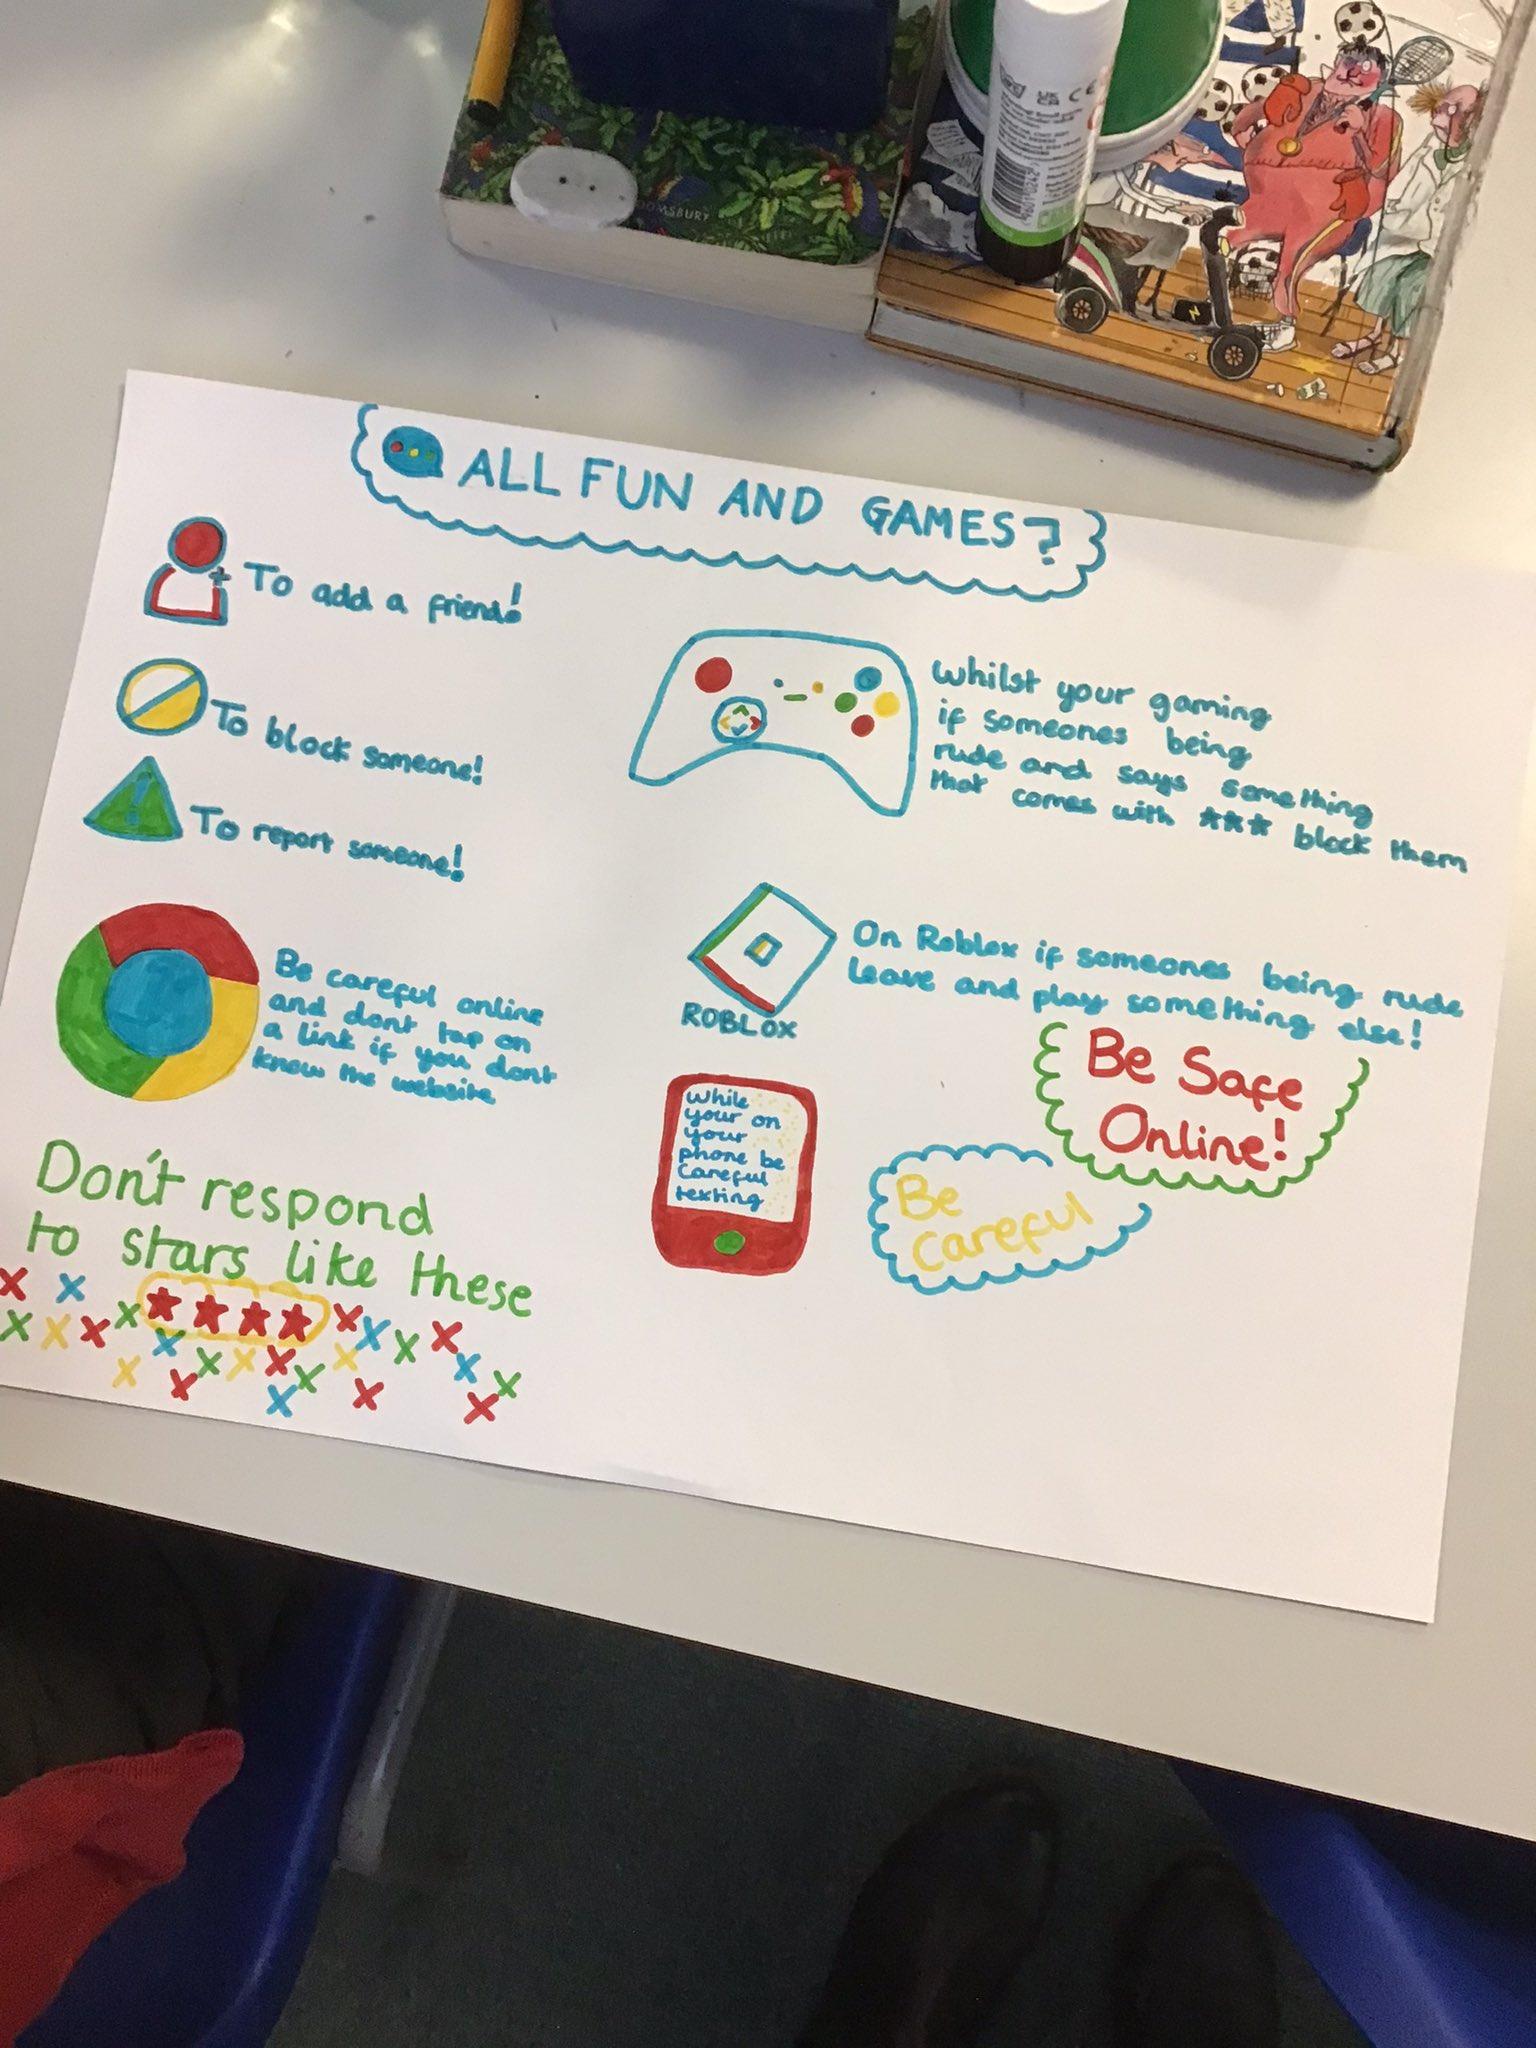 ALL FUN AND GAMES?
To add a friend!
To block someone!
To report someone!
Be careful online
and dont tap on
a link if you dont
know the website
Don't respond
to stars like these
★★★★
Whilst your gaming
if someones being
rude and says something
that comes with ★★★ block them
On Roblox if someones being rude
leave and play something else!
ROBLOX
While
your on
your
phone be
careful
texting
Be Safe
Online!
Be
careful
BLOOMSBURY
CE